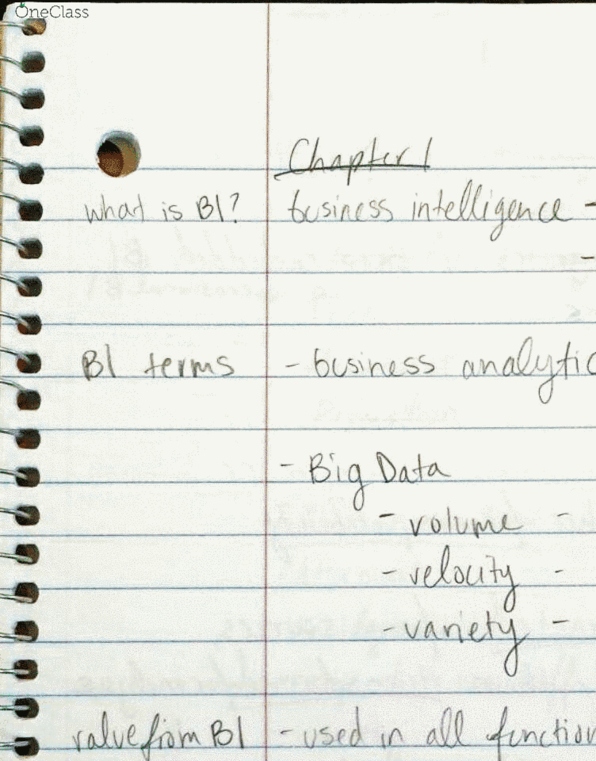 OneClass
Chapter 1
what is BI? business intelligence -
-
BI terms - business analytic
- Big Data
- volume -
- velocity -
- variety -
value from BI - used in all function